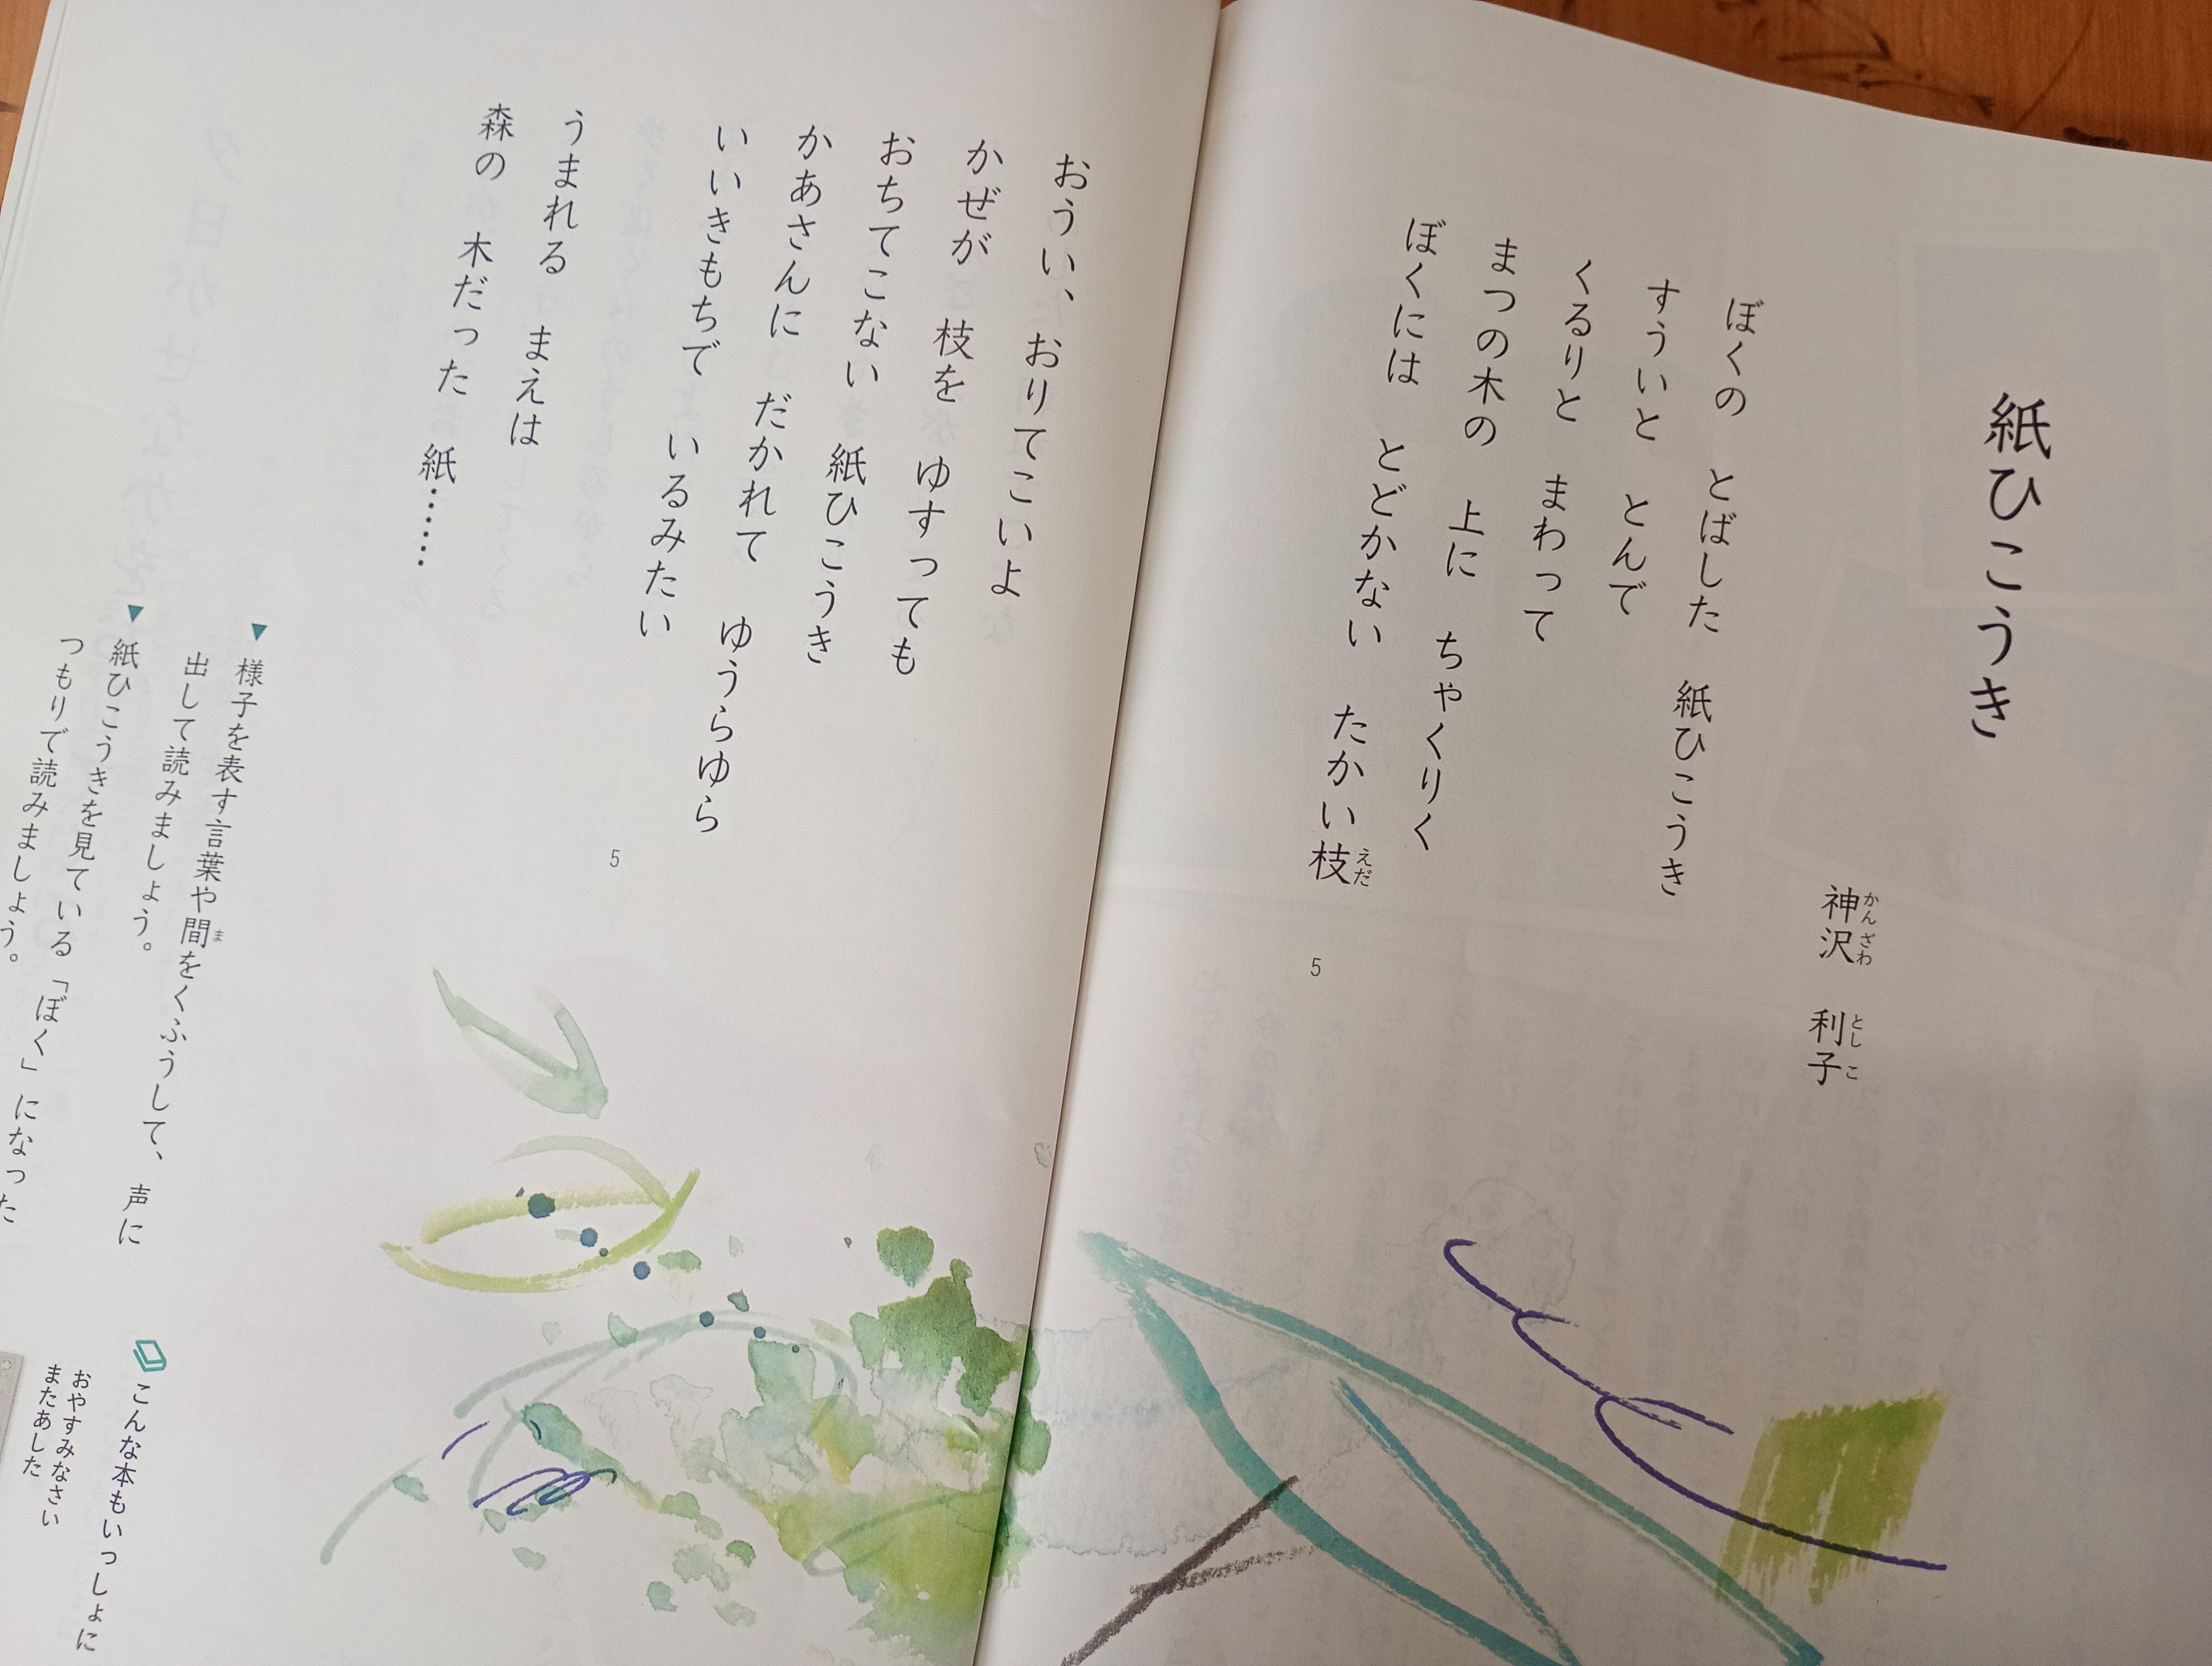 紙ひこうき
神沢 利子
かんざわ としこ
ぼくの とばした 紙ひこうき
すういと とんで
くるりと まわって
まつの木の 上に ちゃくりく
ぼくには とどかない たかい枝
えだ
5
おうい、おりてこいよ
かぜが 枝を ゆすっても
おちてこない 紙ひこうき
かあさんに だかれて ゆうらゆら
いいきもちで いるみたい
5
うまれる まえは
森の 木だった 紙……
▼様子を表す言葉や間をくふうして、声に
ま
出して読みましょう。
▼紙ひこうきを見ている「ぼく」になった
つもりで読みましょう。
こんな本もいっしょに
おやすみなさい
またあした